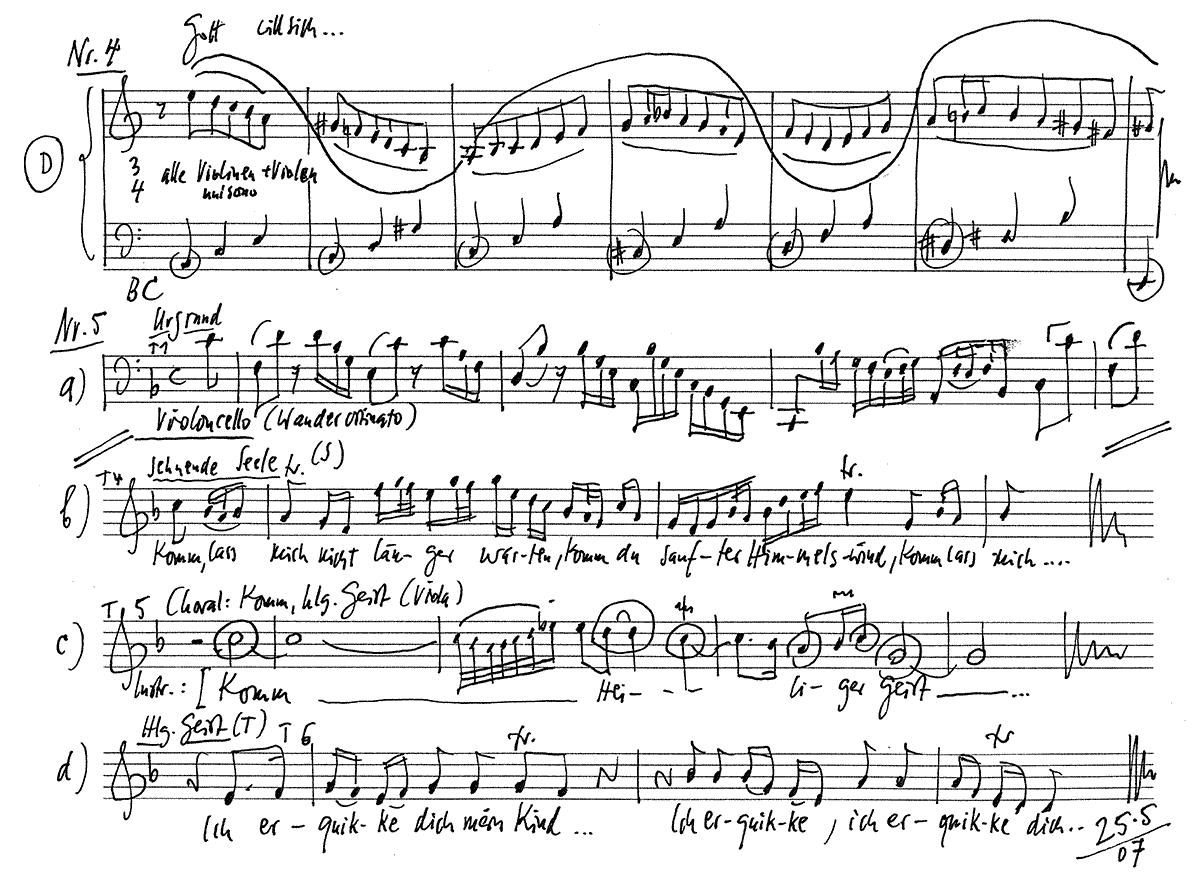 Gott will sich...
Nr. 4
D
3
4
alle Violinen + Violen
unisono
BC
Nr. 5
Urgrund
T1
a)
Violoncello (Wanderostinato)
sehnende Seele tr. (S)
T4
tr.
b)
Komm, lass mich nicht län-ger war-ten, Komm du sanf-ter Him-mels-wind, Komm lass mich ....
T. 5 Choral: Komm, hlg. Geist (Viola)
c)
Instr.: [Komm ___ Hei- - - li-ger Geist ___ ...
Hlg. Geist (T) T 6
tr.
tr
d)
Ich er-quik-ke dich mein Kind ... Ich er-quik-ke, ich er-quik-ke dich..
25.5
07